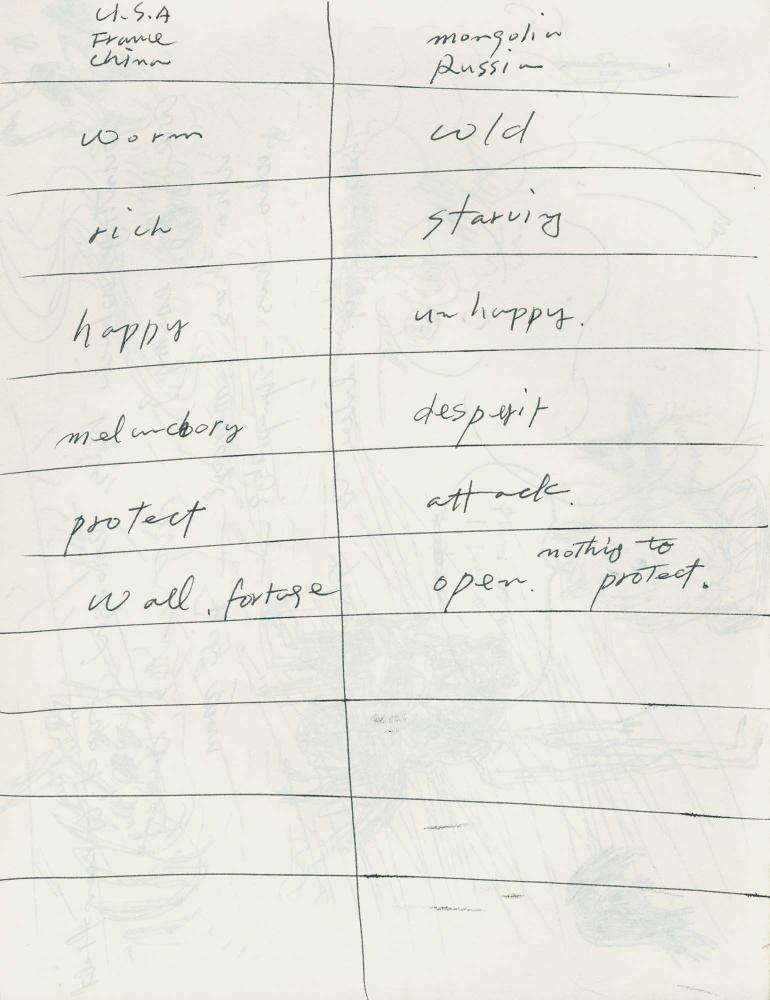 U.S.A
France
China
mongolia
Russia
worm
cold
rich
starving
happy
un happy.
melanchory
desperit
protect
attack.
wall, fortage
open. nothig to
protect.